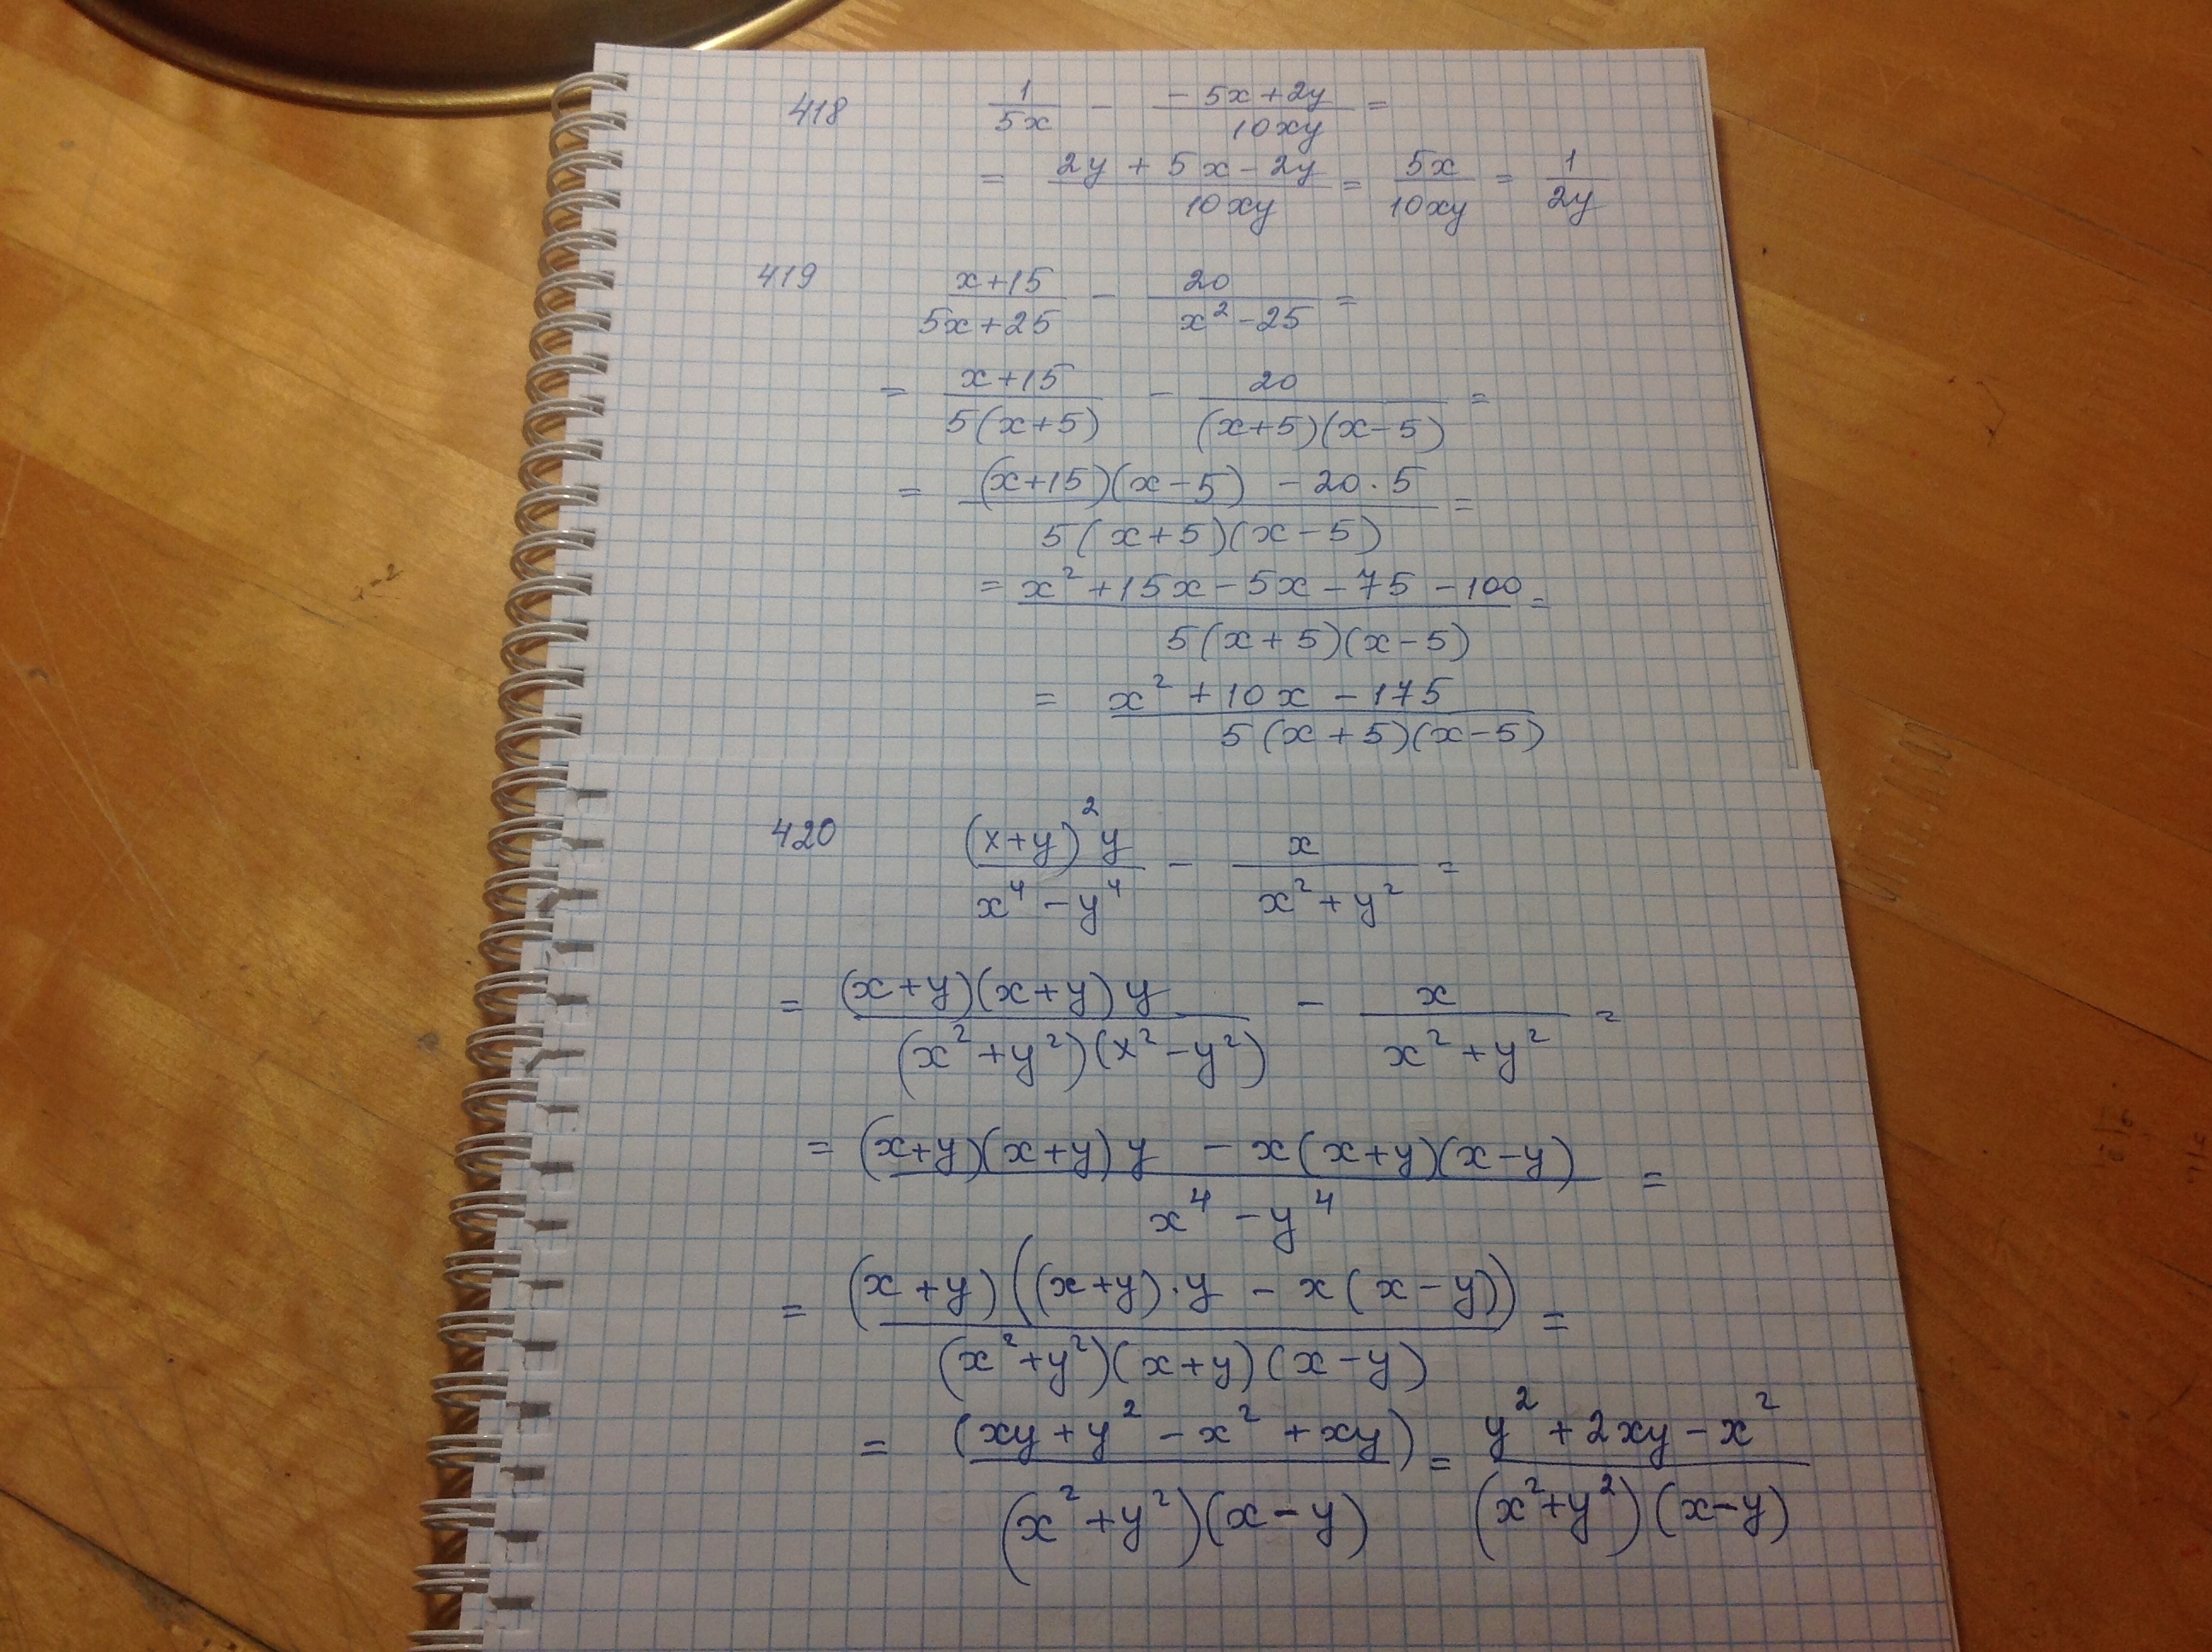 418 1/(5x) - (-5x+2y)/(10xy) =
= (2y + 5x - 2y)/(10xy) = 5x/(10xy) = 1/(2y)
419 (x+15)/(5x+25) - 20/(x²-25) =
= (x+15)/(5(x+5)) - 20/((x+5)(x-5)) =
= ((x+15)(x-5) - 20·5)/(5(x+5)(x-5)) =
= (x²+15x-5x-75-100)/(5(x+5)(x-5)) =
= (x²+10x-175)/(5(x+5)(x-5))
420 ((x+y)²y)/(x⁴-y⁴) - x/(x²+y²) =
= ((x+y)(x+y)y)/((x²+y²)(x²-y²)) - x/(x²+y²) =
= ((x+y)(x+y)y - x(x+y)(x-y))/(x⁴-y⁴) =
= ((x+y)((x+y)·y - x(x-y)))/((x²+y²)(x+y)(x-y)) =
= (xy+y²-x²+xy)/((x²+y²)(x-y)) = (y²+2xy-x²)/((x²+y²)(x-y))